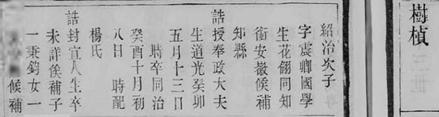 樹楨
紹治次子
字震卿國學
生花翎同知
銜安徽候補
知縣
誥授奉政大夫
生道光癸卯
五月十三日
時卒同治
癸酉十月初
八日 時配
楊氏
誥封宜人生卒
未詳候補子
一秉鈞女一
候補